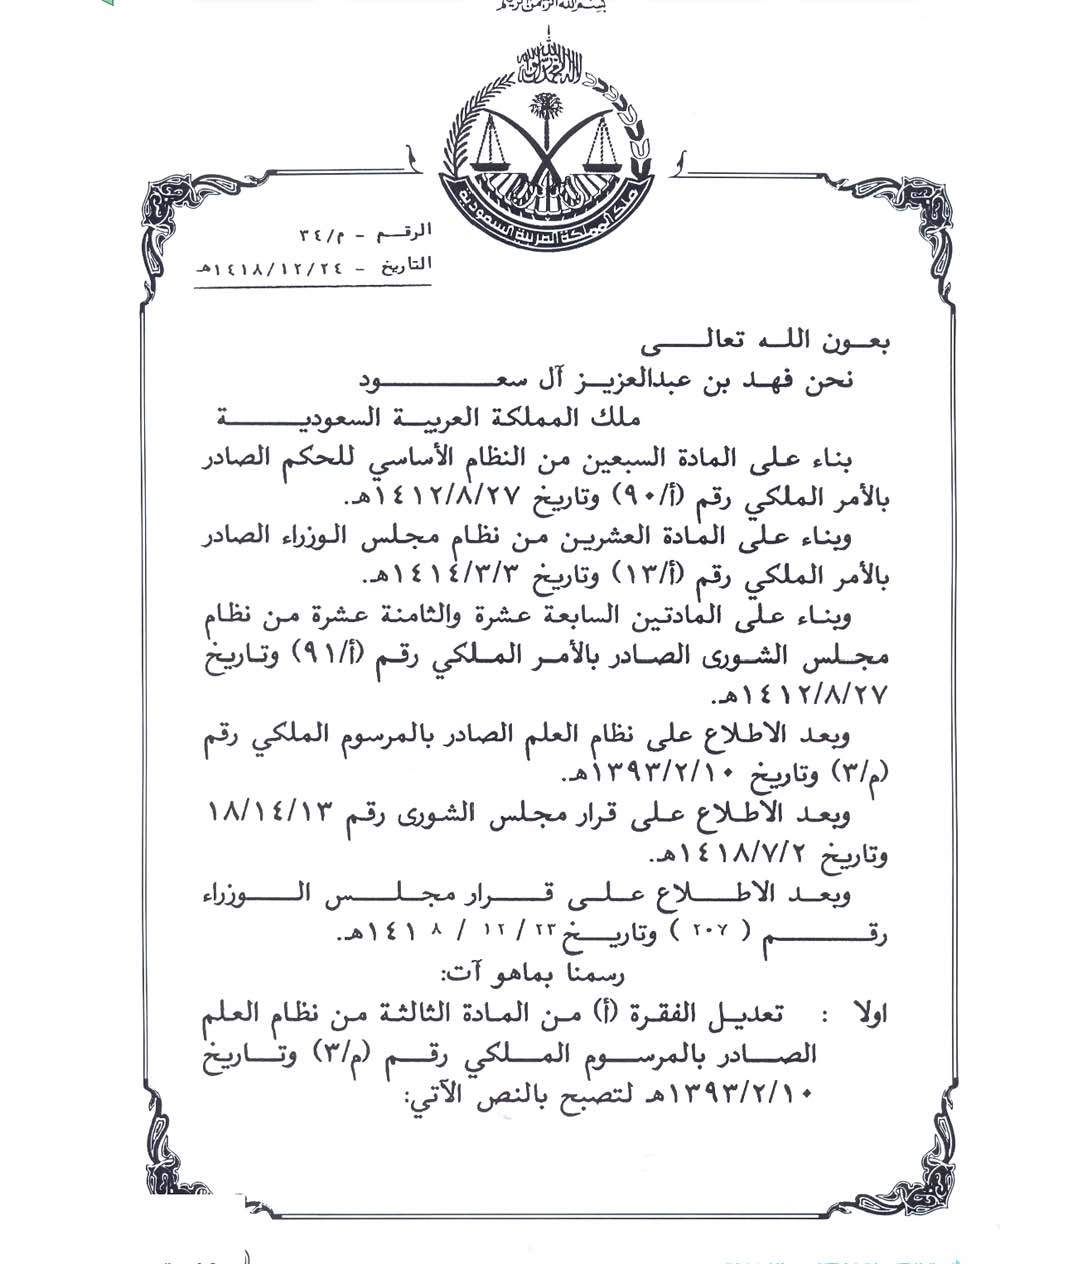 بسم الله الرحمن الرحيم
لا إله إلا الله محمد رسول الله
ملك المملكة العربية السعودية
الرقـم - م/٣٤
التاريخ - ١٤١٨/١٢/٢٤هـ
بعـون اللـه تعالــى
نحن فهـد بن عبدالعزيـز آل سعـــود
ملك المملكة العربيـة السعوديــة
بناء علـى المادة السبعين من النظام الأساسي للحكم الصادر
بالأمر الملكي رقم (أ/٩٠) وتاريخ ١٤١٢/٨/٢٧هـ.
وبناء علـى المادة العشرين مـن نظام مجلس الـوزراء الصادر
بالأمر الملكي رقم (أ/١٣) وتاريخ ١٤١٤/٣/٣هـ.
وبنـاء علـى المادتين السابعة عـشرة والثامنة عشرة مـن نظام
مجـلس الشورى الصادر بالأمـر المـلكي رقـم (أ/٩١) وتـاريخ
١٤١٢/٨/٢٧هـ.
وبعـد الاطـلاع على نظام العلم الصادر بالمرسوم الملكي رقم
(م/٣) وتاريخ ١٣٩٣/٢/١٠هـ.
وبعـد الاطـلاع علـى قرار مجلس الشورى رقـم ١٨/١٤/١٣
وتاريخ ١٤١٨/٧/٢هـ.
وبعـد الاطــلاع علــى قــرار مجـلــس الــوزراء
رقــم ( ٢٠٧ ) وتاريــخ ٢٣/ ١٢ / ١٤١٨هـ.
رسمنا بماهو آت:
اولا : تعديـل الفقـرة (أ) مـن المادة الثالثـة مـن نظام العلم
الصــادر بالمرسـوم المـلكي رقـم (م/٣) وتــاريخ
١٣٩٣/٢/١٠هـ لتصبح بالنص الآتي: